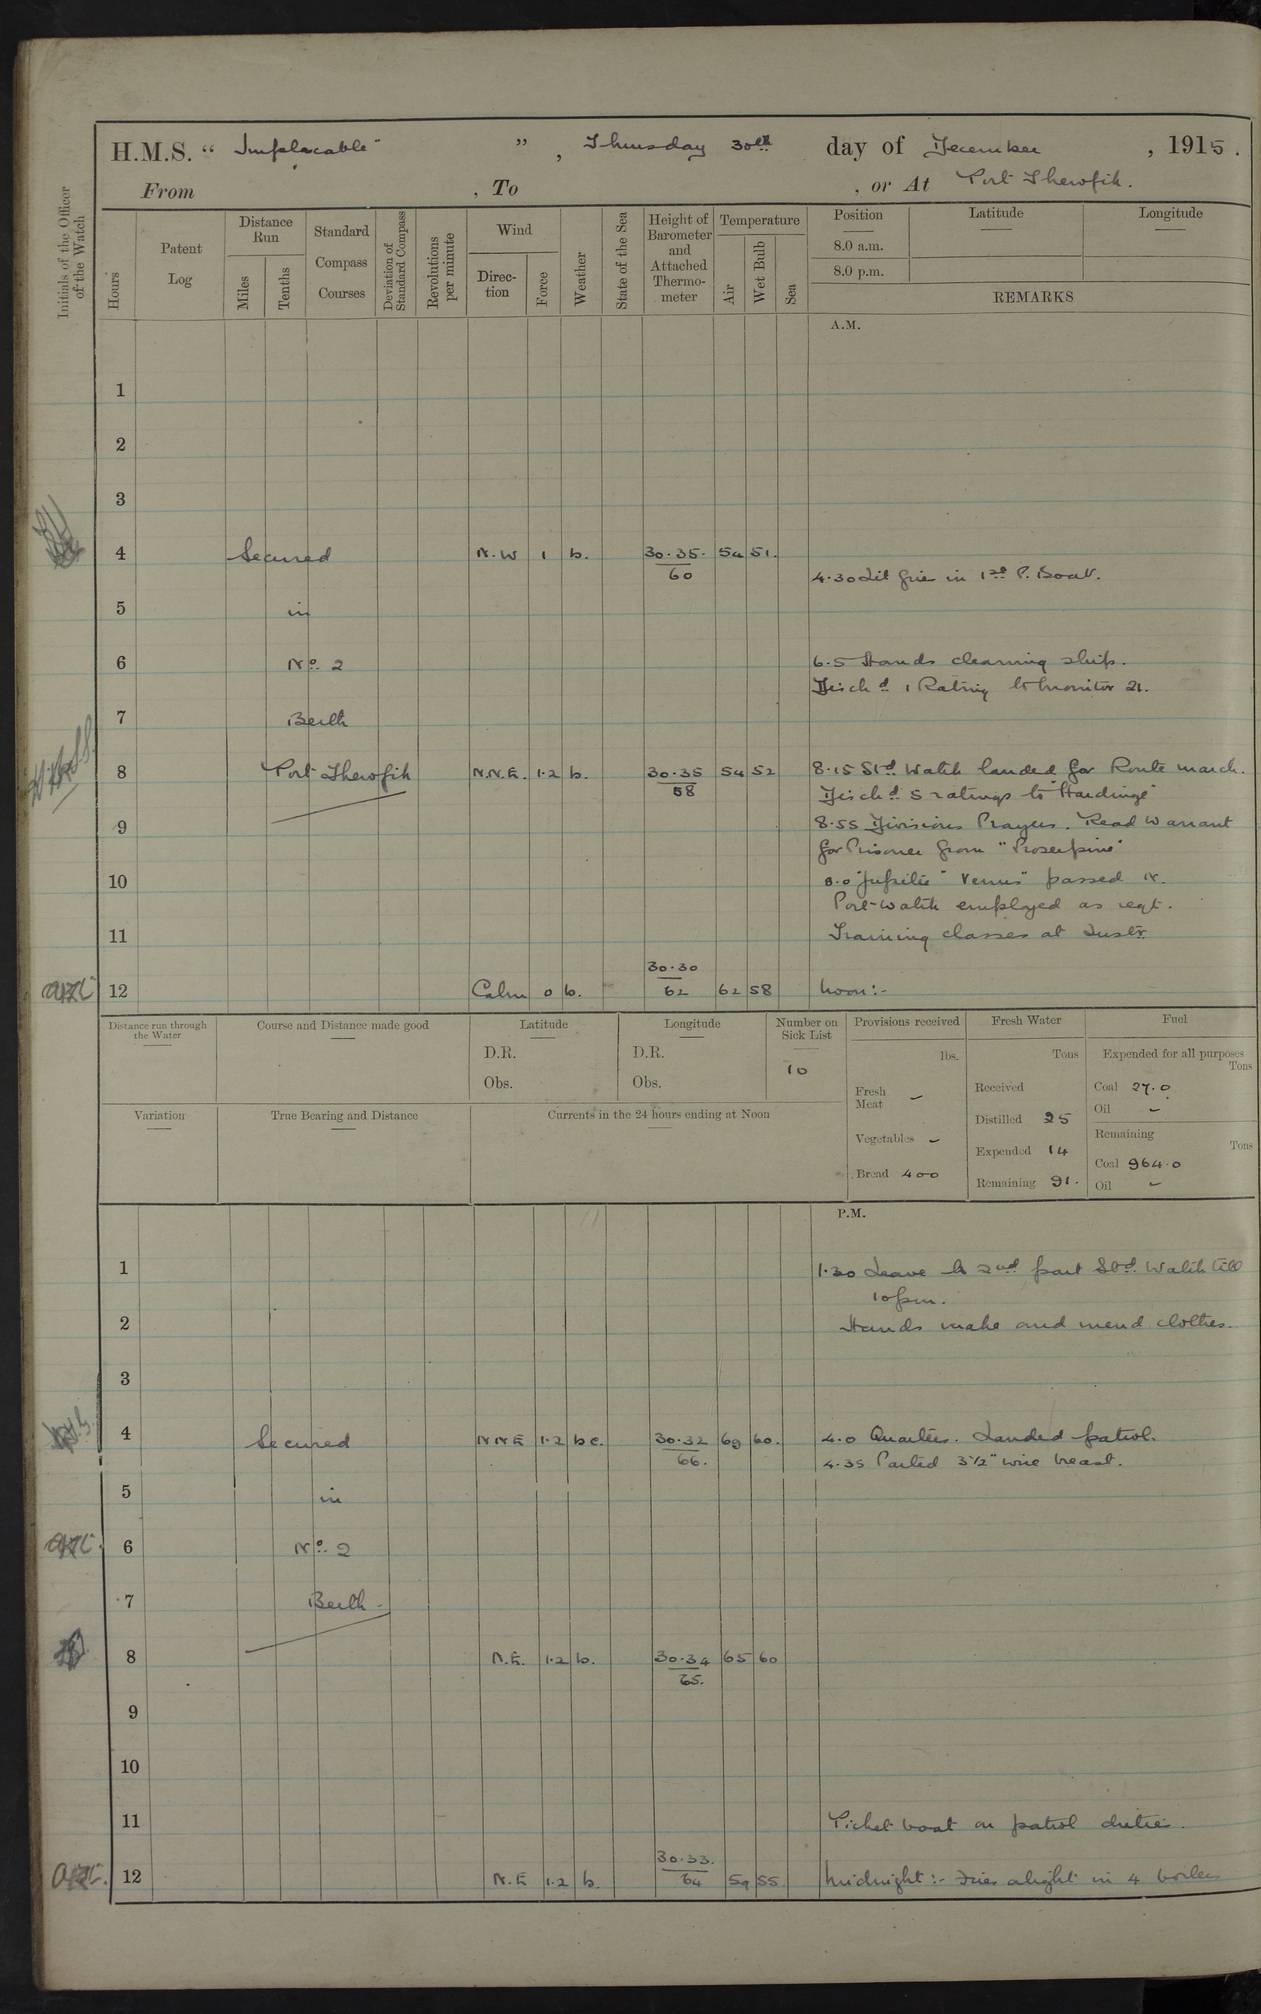 H.M.S. “ Implacable ” , Thursday 30th day of December , 1915.
From , To , or At Port Thewfik.
Initials of the Officer of the Watch
Hours
Patent Log
Distance Run
Miles
Tenths
Standard Compass Courses
Deviation of Standard Compass
Revolutions per minute
Wind
Direc-tion
Force
Weather
State of the Sea
Height of Barometer and Attached Thermo-meter
Temperature
Air
Wet Bulb
Sea
Position Latitude Longitude
8.0 a.m.
8.0 p.m.
REMARKS
A.M.
1
2
3
4 Secured N.W 1 b. 30.35. 54 51.
60
4.30 Lit fires in 1st P. Boat.
5 in
6 No. 2 6.5 Hands cleaning ship.
Disch d. 1 Rating to Monitor 21.
7 Berth
8 Port Thewfik N.N.E. 1.2 b. 30.35 54 52 8.15 Stbd. Watch landed for Route march.
58 Disch d. 5 ratings to "Hardinge"
9 8.55 Divisions Prayers. Read Warrant
for Prisoner from "Proserpine"
10 "Jupiter" "Venus" passed N.
Port-watch employed as reqt.
11 Training classes at Instr.
30.30
12 Calm 0 b. 62 62 58 Noon:-
Distance run through the Water
Course and Distance made good
Latitude
D.R.
Obs.
Longitude
D.R.
Obs.
Number on Sick List
10
Provisions received
lbs.
Fresh Meat –
Vegetables –
Bread 400
Fresh Water
Tons
Received
Distilled 25
Expended 14
Remaining 91.
Fuel
Expended for all purposes
Tons
Coal 27.0
Oil –
Remaining
Tons
Coal 964.0
Oil –
Variation
True Bearing and Distance
Currents in the 24 hours ending at Noon
P.M.
1 1.30 Leave to 2nd part Stbd. Watch till
10pm.
2 Hands make and mend clothes.
3
4 Secured N N E 1.2 bc. 30.32 69 60. 4.0 Quarters. Landed patrol.
66. 4.35 Parted 3½" wire breast.
5 in
6 No. 2
7 Berth.
8 N.E. 1.2 b. 30.34 65 60
65.
9
10
11 Picket boat on patrol duties.
30.33.
12 N.E 1.2 b. 64 59 55 Midnight:- Fires alight in 4 boilers